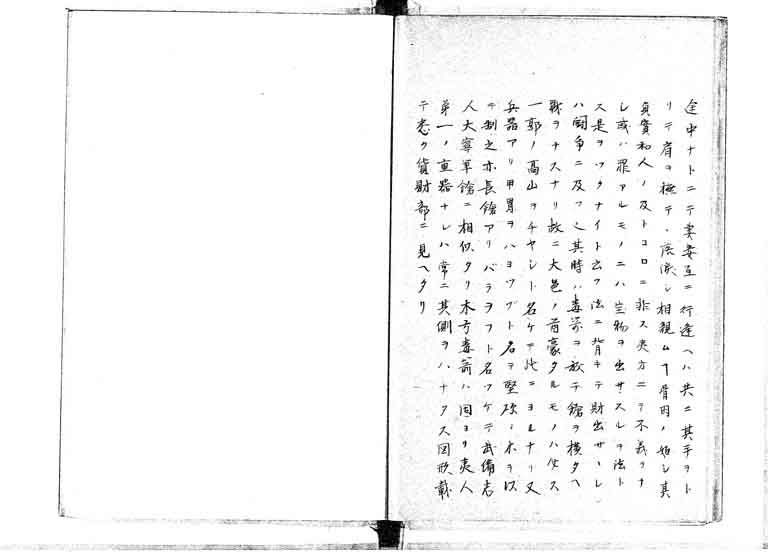 途中ナトニテ妻妾互ニ行違ヘハ共ニ其手ヲト
リテ肩ヲ撫テ流涙シ相親ムヿ骨肉ノ如シ其
貞實和人ノ及トコロニ非ス夷方ニテ不義ヲナ
シ或ハ罪アルモノニハ宝物ヲ出サスルヲ法ト
ス是ヲツクナイト云フ法ニ背キテ財出サヽレ
ハ闘争ニ及フ其時ハ毒箭ヲ放テ鎗ヲ横タヘ
戦ヲナスナリ故ニ大邑ノ酋豪タルモノハ必ス
一郭ノ高山ヲチヤシト名ケテ此ニヨルナリ又
兵器アリ甲冑ヲハヨツフト名ヲ堅硬ノ木ヲ以
テ制之亦長鎗アリバラヲフト名ツケテ武備志
人大寧軍鎗ニ相似タリ木弓毒箭ハ固ヨリ夷人
第一ノ重器ナレハ常ニ其側ヲハナタス図形載
テ悉ク貨財部ニ見ヘタリ